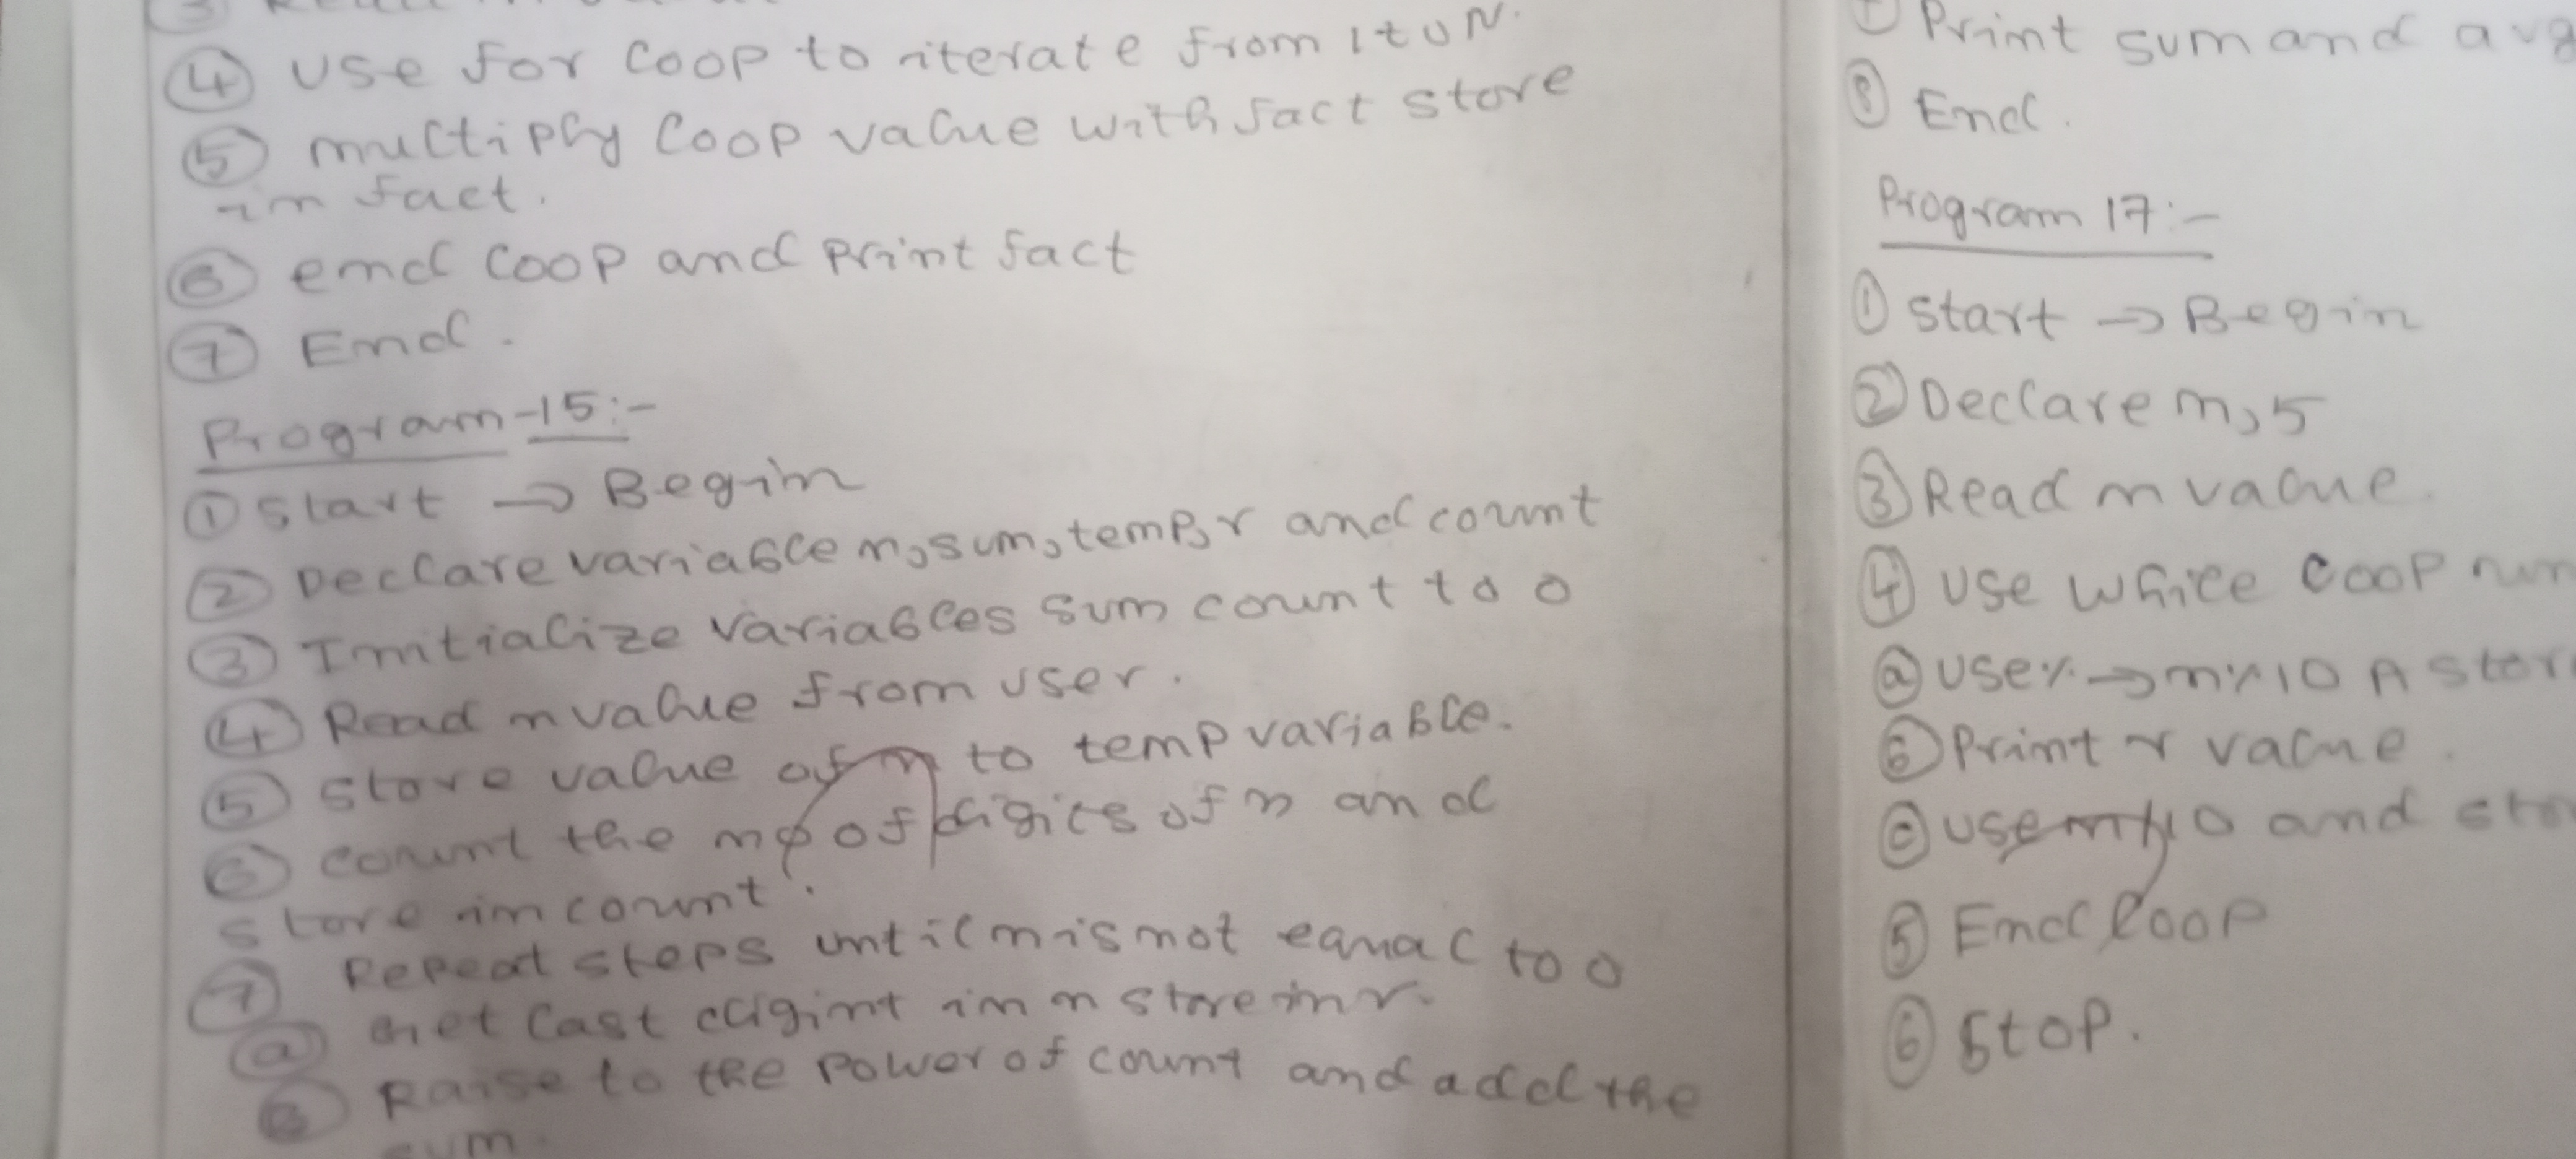 ④ use for loop to iterate from 1 to N.
⑤ multiply loop value with fact store
in fact.
⑥ end loop and print fact
⑦ End.
Program-15:-
① Start → Begin
② Declare variable n, sum, temp, r and count
③ Initialize variables sum count to 0
④ Read n value from user.
⑤ store value of n to temp variable.
⑥ count the no of digits of n and
store in count.
⑦ Repeat steps until n is not equal to 0
ⓐ Get last digint in n store in r.
ⓑ Raise to the power of count and add the
sum.
Print sum and avg
⑧ End.
Program 17:-
① Start → Begin
② Declare n, 5
③ Read n value.
④ use while loop
ⓐ use % → n%10 A
ⓑ Print r value.
ⓒ use n/10 and
⑤ End loop
⑥ Stop.